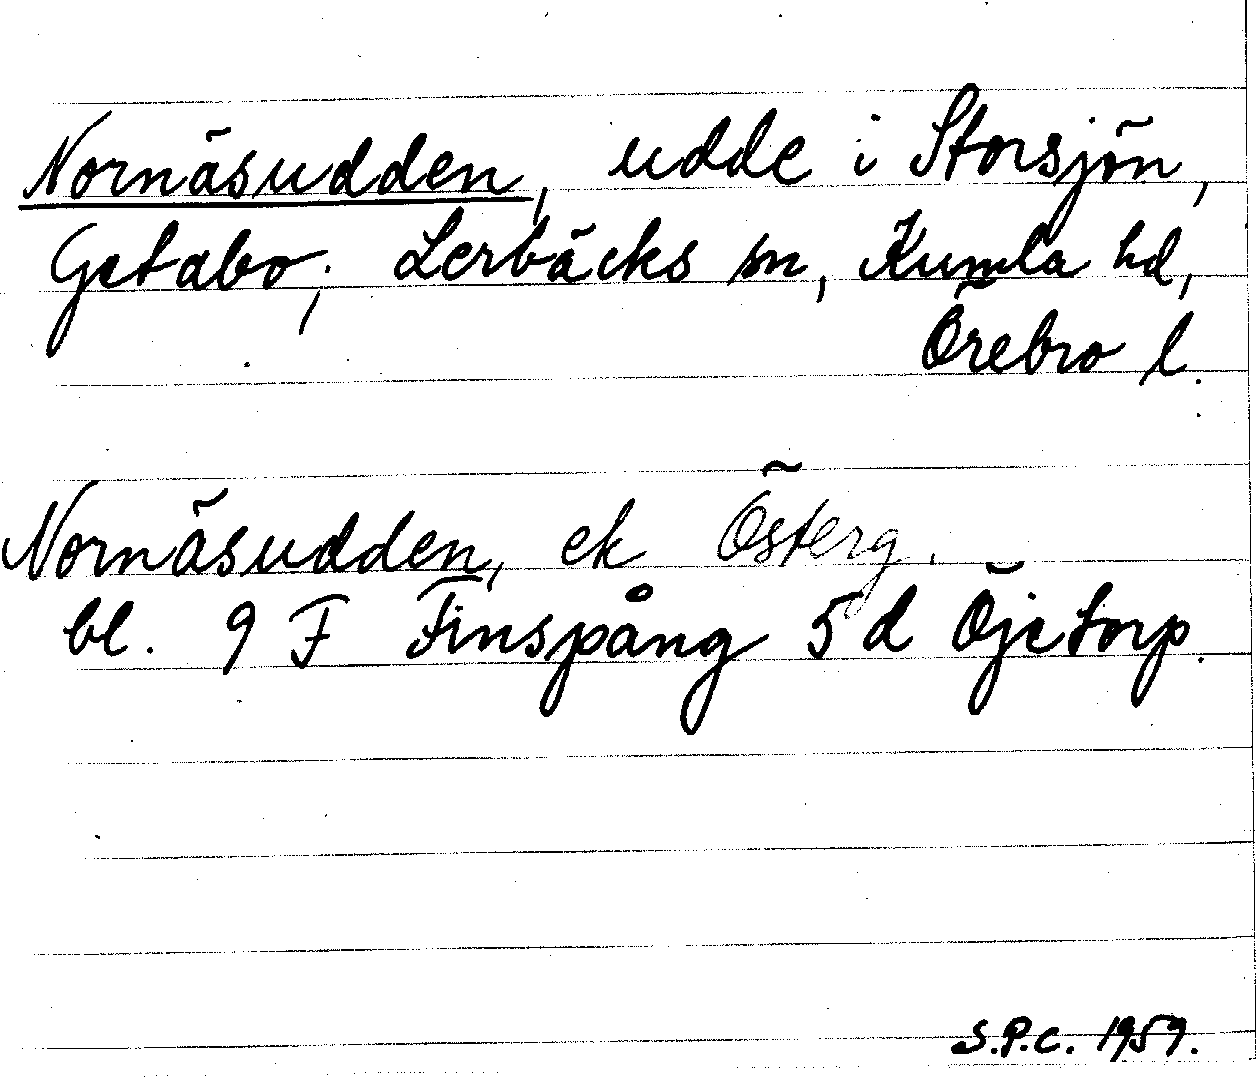 Nornäsudden, udde i Storsjön,
Getabo; Lerbäcks sn, Kumla hd,
Örebro l.
Nornäsudden, ek Österg.
bl. 9 F Finspång 5 d Öjetorp.
S.P.C. 1959.